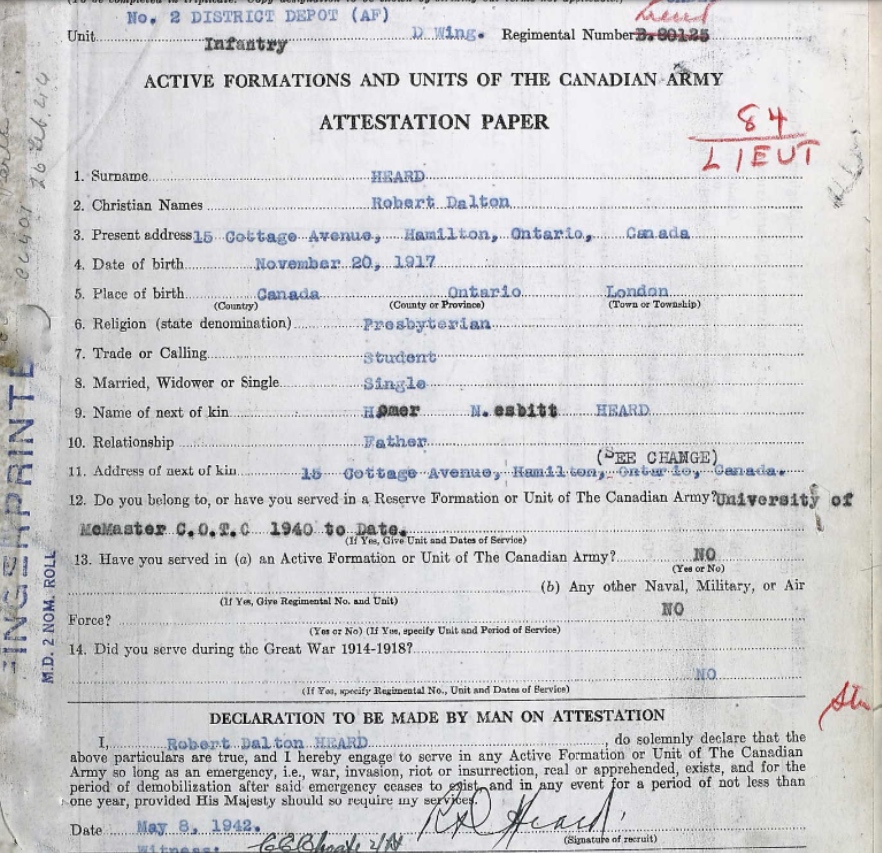 No. 2 DISTRICT DEPOT (AF) Lieut
Unit Infantry D Wing. Regimental Number B.80125
ACTIVE FORMATIONS AND UNITS OF THE CANADIAN ARMY
ATTESTATION PAPER
84
LIEUT
1. Surname HEARD
2. Christian Names Robert Dalton
3. Present address 15 Cottage Avenue, Hamilton, Ontario, Canada
4. Date of birth November 20, 1917
5. Place of birth Canada Ontario London
(Country) (County or Province) (Town or Township)
6. Religion (state denomination) Presbyterian
7. Trade or Calling Student
8. Married, Widower or Single Single
9. Name of next of kin Homer N.esbitt HEARD
10. Relationship Father
(SEE CHANGE)
11. Address of next of kin 15 Cottage Avenue, Hamilton, Ontario, Canada.
12. Do you belong to, or have you served in a Reserve Formation or Unit of The Canadian Army? University of
McMaster C.O.T.C 1940 to Date.
(If Yes, Give Unit and Dates of Service)
13. Have you served in (a) an Active Formation or Unit of The Canadian Army? NO
(Yes or No)
(b) Any other Naval, Military, or Air
(If Yes, Give Regimental No. and Unit)
NO
Force?
(Yes or No) (If Yes, specify Unit and Period of Service)
14. Did you serve during the Great War 1914-1918?
NO
(If Yes, specify Regimental No., Unit and Dates of Service)
DECLARATION TO BE MADE BY MAN ON ATTESTATION
I, Robert Dalton HEARD, do solemnly declare that the
above particulars are true, and I hereby engage to serve in any Active Formation or Unit of The Canadian
Army so long as an emergency, i.e., war, invasion, riot or insurrection, real or apprehended, exists, and for the
period of demobilization after said emergency ceases to exist, and in any event for a period of not less than
one year, provided His Majesty should so require my services.
Date May 8, 1942. RD Heard
(Signature of recruit)
Witness:
INGERPRINTE
M.D. 2 NOM. ROLL